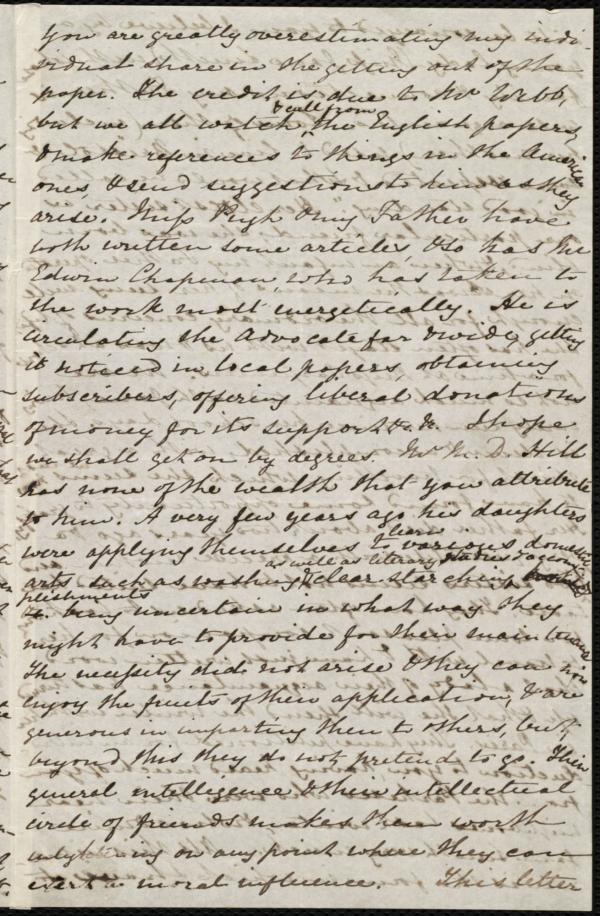 you are greatly overestimating my indi-
vidual share in the getting out of the
paper. The credit is due to Mr Webb,
but we all watch, & cull from the English papers,
& make references to things in the American
ones, & send suggestions to him as they
arise. Miss Pugh & my Father have
both written some articles, & so has the
Edwin Chapman, who has taken to
the work most energetically. He is
circulating the Advocate far & wide, getting
it noticed in local papers, obtaining
subscribers, offering liberal donations
of money for its support &c. &c. I hope
we shall get on by degrees. Mr. M. D. Hill
has none of the wealth that you attribute
to him. A very few years ago his daughters
were applying themselves to learn various domestic
arts, such as washing & clear-starching, as well as literary studies & accom-
plishments
&c. being uncertain in what way they
might have to provide for their maintenance
The necessity did not arise & they can now
enjoy the fruits of their application, & are
generous in imparting them to others, but
beyond this they do not pretend to go. Their
general intelligence & their intellectual
circle of friends makes them worth
enlightening on any point where they can
exert a moral influence. This letter